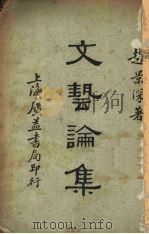 趙景深著
文藝論集
上海廣益書局印行